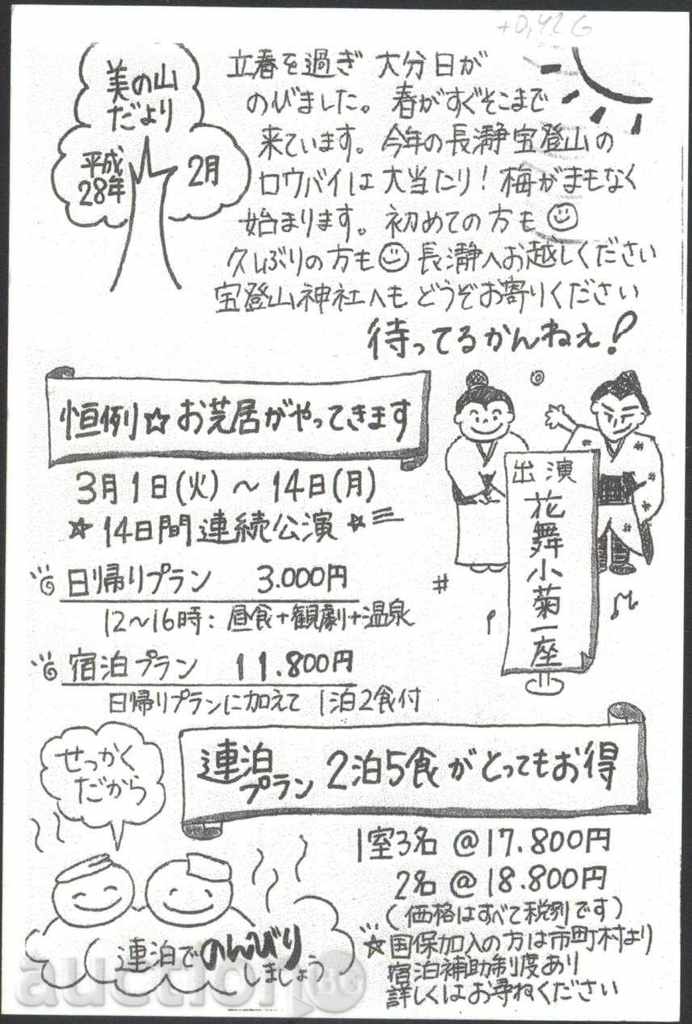 +0,42 G
美の山
だより
平成
28年
2月
立春を過ぎ 大分日が
のびました。 春がすぐそこまで
来ています。 今年の長瀞宝登山の
ロウバイは大当たり! 梅がまもなく
始まります。 初めての方も
久しぶりの方も 長瀞へお越しください
宝登山神社へも どうぞお寄りください
待ってるかんねぇ!
恒例☆お芝居がやってきます
3月1日(火)~14日(月)
☆14日間連続公演☆
日帰りプラン 3.000円
12~16時: 昼食+観劇+温泉
宿泊プラン 11.800円
日帰りプランに加えて 1泊2食付
出演
花舞小菊一座
せっかく
だから
連泊
プラン 2泊5食がとってもお得
1室3名 @17.800円
2名 @18.800円
(価格はすべて税別です)
☆国保加入の方は市町村より
宿泊補助制度あり
詳しくはお尋ねください
連泊でのんびり
しましょう
auction BG